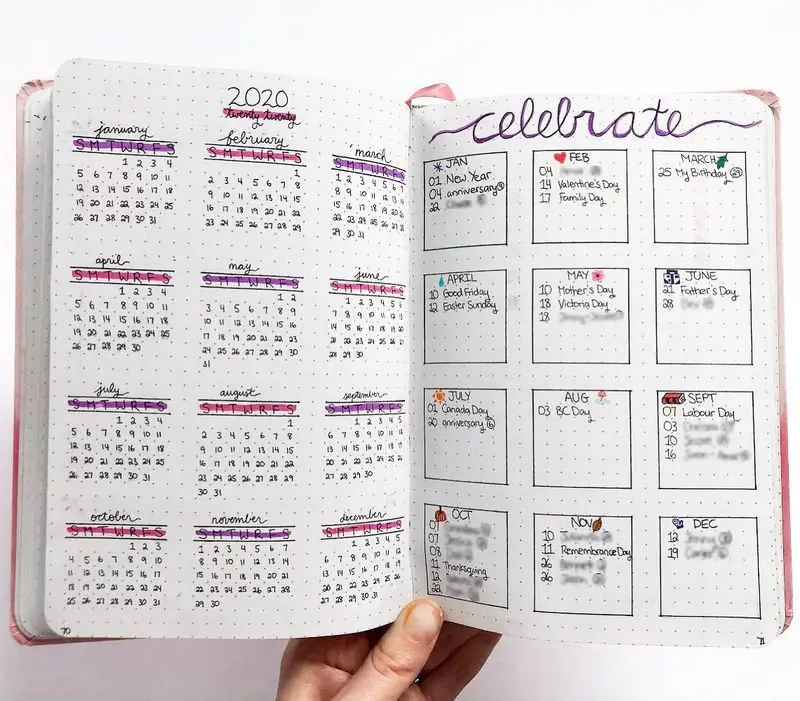 2020
twenty twenty
january
S M T W R F S
1 2 3 4
5 6 7 8 9 10 11
12 13 14 15 16 17 18
19 20 21 22 23 24 25
26 27 28 29 30 31
february
S M T W R F S
1
2 3 4 5 6 7 8
9 10 11 12 13 14 15
16 17 18 19 20 21 22
23 24 25 26 27 28 29
march
S M T W R F S
1 2 3 4 5 6 7
8 9 10 11 12 13 14
15 16 17 18 19 20 21
22 23 24 25 26 27 28
29 30 31
april
S M T W R F S
1 2 3 4
5 6 7 8 9 10 11
12 13 14 15 16 17 18
19 20 21 22 23 24 25
26 27 28 29 30
may
S M T W R F S
1 2
3 4 5 6 7 8 9
10 11 12 13 14 15 16
17 18 19 20 21 22 23
24 25 26 27 28 29 30
31
june
S M T W R F S
1 2 3 4 5 6
7 8 9 10 11 12 13
14 15 16 17 18 19 20
21 22 23 24 25 26 27
28 29 30
july
S M T W R F S
1 2 3 4
5 6 7 8 9 10 11
12 13 14 15 16 17 18
19 20 21 22 23 24 25
26 27 28 29 30 31
august
S M T W R F S
1
2 3 4 5 6 7 8
9 10 11 12 13 14 15
16 17 18 19 20 21 22
23 24 25 26 27 28 29
30 31
september
S M T W R F S
1 2 3 4 5
6 7 8 9 10 11 12
13 14 15 16 17 18 19
20 21 22 23 24 25 26
27 28 29 30
october
S M T W R F S
1 2 3
4 5 6 7 8 9 10
11 12 13 14 15 16 17
18 19 20 21 22 23 24
25 26 27 28 29 30 31
november
S M T W R F S
1 2 3 4 5 6 7
8 9 10 11 12 13 14
15 16 17 18 19 20 21
22 23 24 25 26 27 28
29 30
december
S M T W R F S
1 2 3 4 5
6 7 8 9 10 11 12
13 14 15 16 17 18 19
20 21 22 23 24 25 26
27 28 29 30 31
70
celebrate
JAN
01 New Year
04 anniversary
22
FEB
04
14 Valentine's Day
17 Family Day
MARCH
25 My Birthday 29
APRIL
10 Good Friday
12 Easter Sunday
MAY
10 Mother's Day
18 Victoria Day
18
JUNE
21 Father's Day
28
JULY
01 Canada Day
20 anniversary 6
AUG
03 BC Day
SEPT
07 Labour Day
03
10
16
OCT
07
08
11 Thanksgiving
12
22
NOV
10
11 Remembrance Day
26
26
DEC
12
19
71